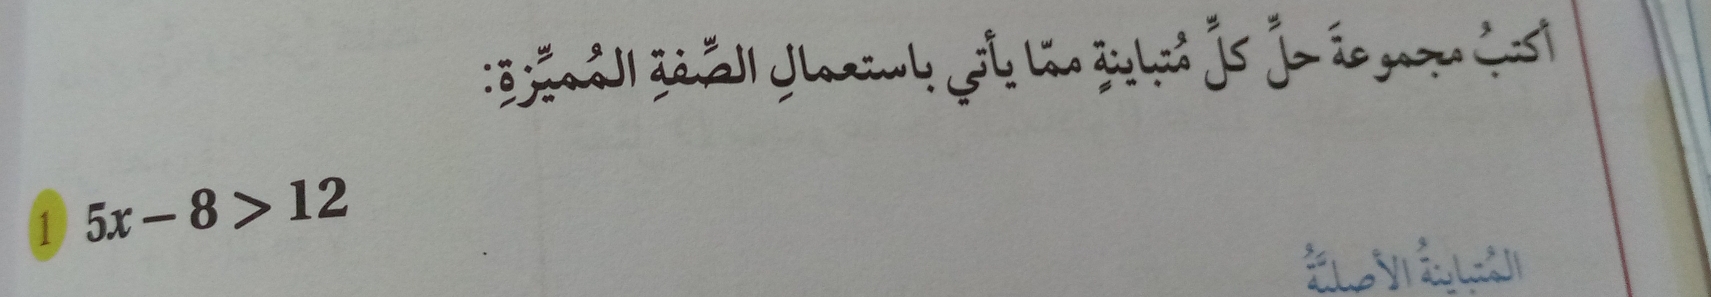 أكتبُ مجموعةَ حلِّ كلِّ مُتباينةٍ ممّا يأتي باستعمالِ الصِّفةِ المُميِّزةِ:
1 5x − 8 > 12
المُتباينةُ الأصليَّةُ